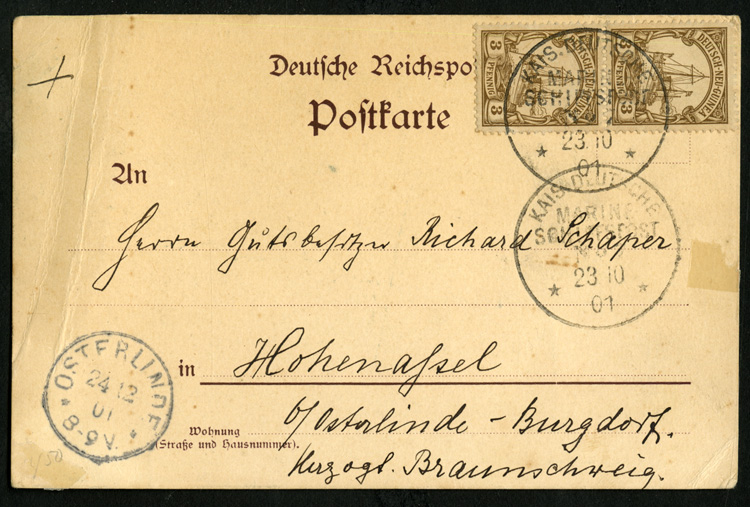 Deutsche Reichspo
Postkarte
3 PFENNIG 3
DEUTSCH-NEU-GUINEA
3 PFENNIG
DEUTSCH-NEU-GUINEA
KAIS. DEUTSCHE
MARINE
SCHIFFSPOST
23 10
01
An
Herrn Gutsbesitzer Richard Schaper
KAIS. DEUTSCHE
MARINE
SCHIFFSPOST
23 10
01
in Hohenassel
b/Osterlinde - Burgdorf.
Herzogt. Braunschweig.
Wohnung
(Straße und Hausnummer).
OSTERLINDE
24 12
01
8-9 V.
3/50